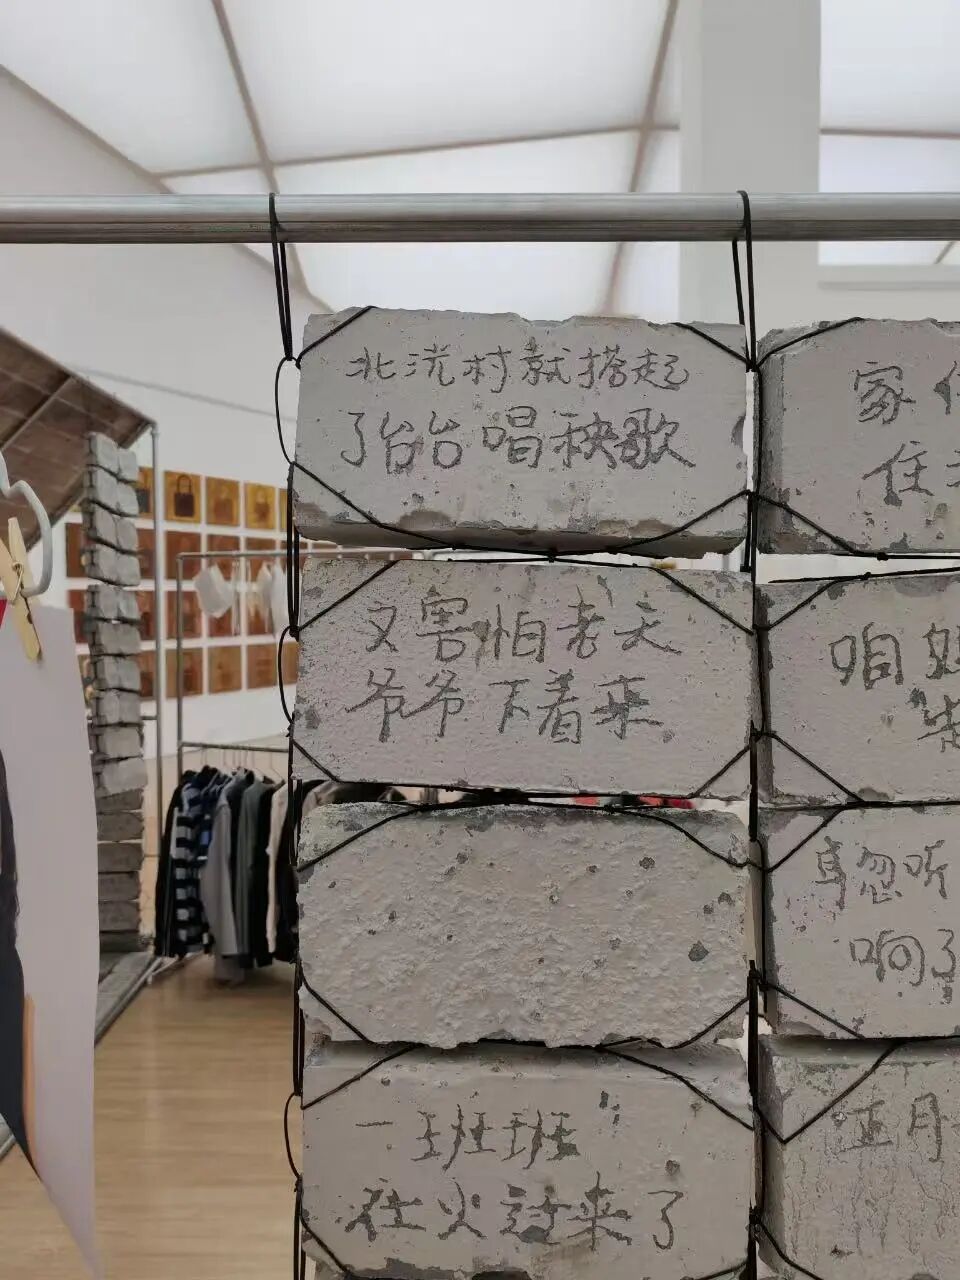 北洸村就搭起
了台台唱秧歌
又害怕老天
爷爷下着来
一班班
社火过来了
家
住
咱
忽听
响了
正月